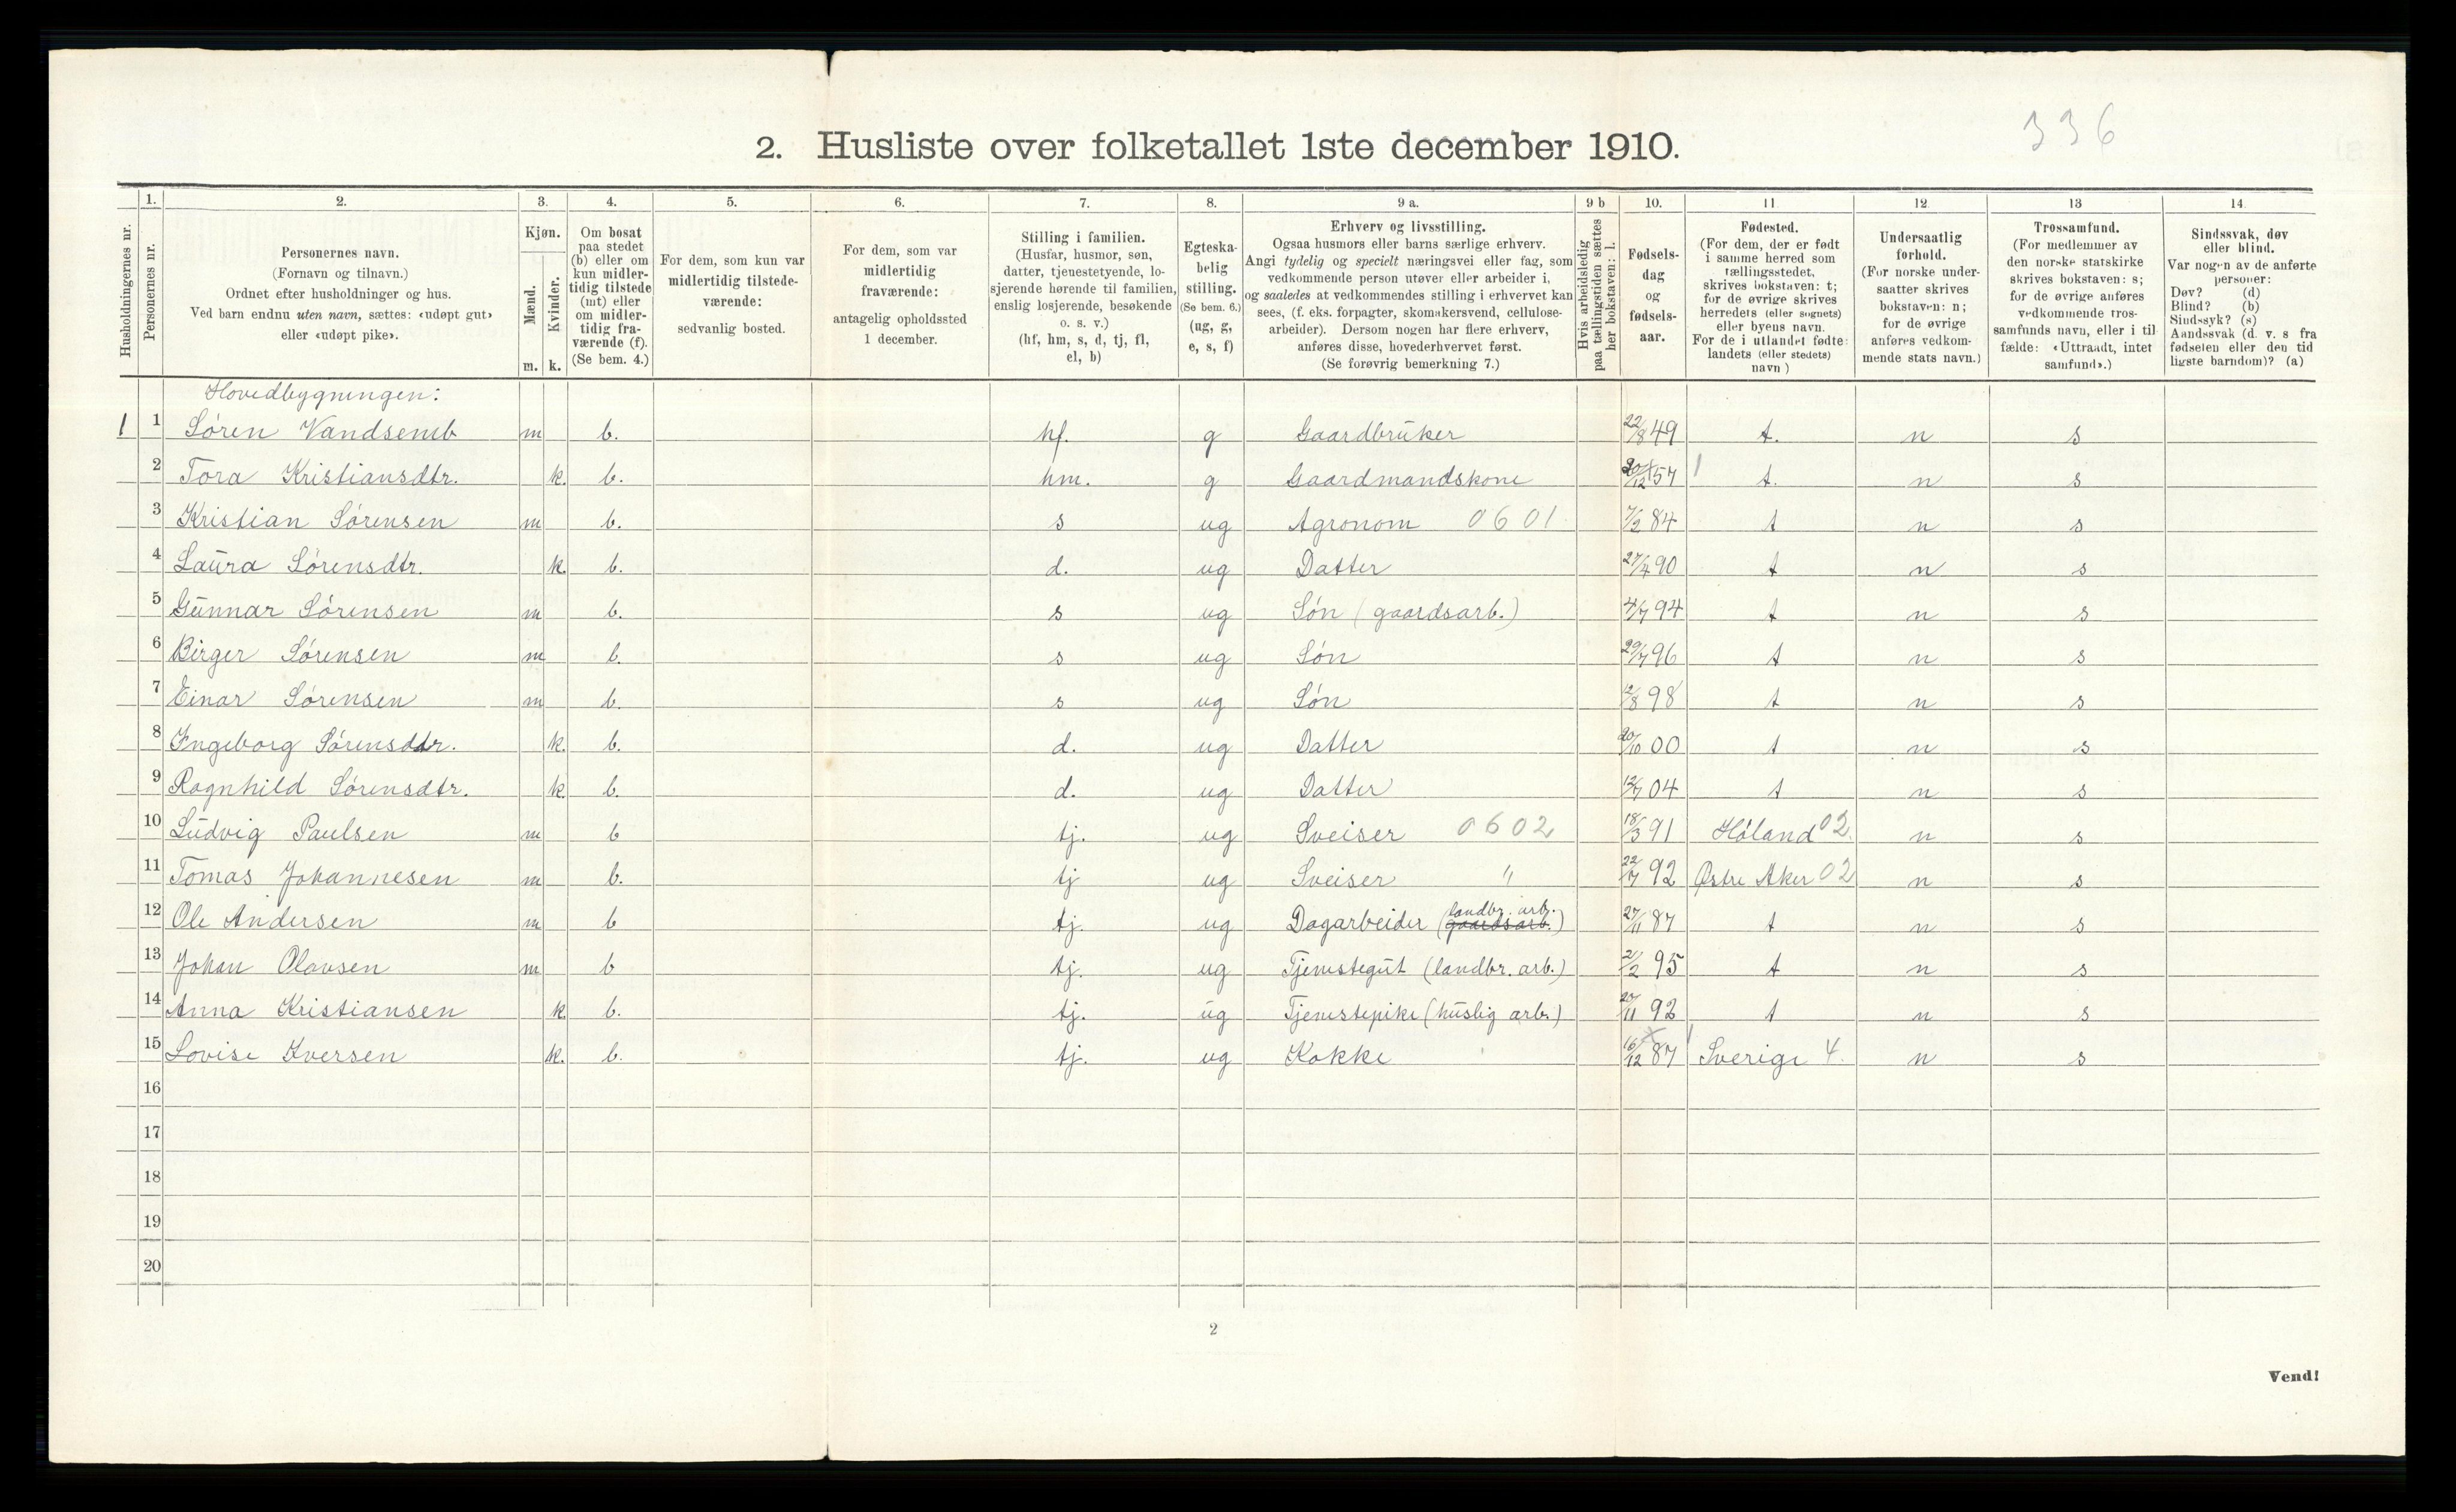 336
2. Husliste over folketallet 1ste december 1910.
Husholdningernes nr.
1.
Personernes nr.
2.
Personernes navn.
(Fornavn og tilnavn.)
Ordnet efter husholdninger og hus.
Ved barn endnu uten navn, sættes: «udøpt gut»
eller «udøpt pike».
3.
Kjøn.
Mænd.
Kvinder.
m. k.
4.
Om bosat
paa stedet
(b) eller om
kun midler-
tidig tilstede
(mt) eller
om midler-
tidig fra-
værende (f).
(Se bem. 4.)
5.
For dem, som kun var
midlertidig tilstede-
værende:
sedvanlig bosted.
6.
For dem, som var
midlertidig
fraværende:
antagelig opholdssted
1 december.
7.
Stilling i familien.
(Husfar, husmor, søn,
datter, tjenestetyende, lo-
sjerende hørende til familien,
enslig losjerende, besøkende
o. s. v.)
(hf, hm, s, d, tj, fl,
el, b)
8.
Egteska-
belig
stilling.
(Se bem. 6.)
(ug, g,
e, s, f)
9 a.
Erhverv og livsstilling.
Ogsaa husmors eller barns særlige erhverv.
Angi tydelig og specielt næringsvei eller fag, som
vedkommende person utøver eller arbeider i,
og saaledes at vedkommendes stilling i erhvervet kan
sees, (f. eks. forpagter, skomakersvend, cellulose-
arbeider). Dersom nogen har flere erhverv,
anføres disse, hovederhvervet først.
(Se forøvrig bemerkning 7.)
9 b
Hvis arbeidsledig
paa tællingstiden sættes
her bokstaven: l.
10.
Fødsels-
dag
og
fødsels-
aar.
11
Fødested.
(For dem, der er født
i samme herred som
tællingsstedet,
skrives bokstaven: t;
for de øvrige skrives
herredets (eller sognets)
eller byens navn.
For de i utlandet fødte:
landets (eller stedets)
navn )
12.
Undersaatlig
forhold.
(For norske under-
saatter skrives
bokstaven: n;
for de øvrige
anføres vedkom-
mende stats navn.)
13
Trossamfund.
(For medlemmer av
den norske statskirke
skrives bokstaven: s;
for de øvrige anføres
vedkommende tros-
samfunds navn, eller i til
fælde: «Uttraadt, intet
samfund».)
14.
Sindssvak, døv
eller blind.
Var nogen av de anførte
personer:
Døv? (d)
Blind? (b)
Sindssyk? (s)
Aandssvak (d. v. s fra
fødselen eller den tid
ligste barndom)? (a)
Hovedbygningen:
1 1 Søren Vandsemb m b. hf. g Gaardbruker 22/8 49 t. n s
2 Tora Kristiansdtr. k. b. hm. g Gaardmandskone 20/12 57 t. n s
3 Kristian Sørensen m b. s ug Agronom 0601 7/2 84 t n s
4 Laura Sørensdtr. k. b. d. ug Datter 27/4 90 t n s
5 Gunnar Sørensen m b. s ug Søn (gaardsarb.) 4/7 94 t n s
6 Birger Sørensen m b. s ug Søn 29/7 96 t n s
7 Einar Sørensen m b. s ug Søn 12/8 98 t n s
8 Ingeborg Sørensdtr. k. b. d. ug Datter 20/10 00 t n s
9 Ragnhild Sørensdtr. k. b. d. ug Datter 12/7 04 t n s
10 Ludvig Paulsen m b tj. ug Sveiser 0602 18/3 91 Høland 02. n s
11 Tomas Johannesen m b. tj ug Sveiser " 22/7 92 Østre Aker 02 n s
12 Ole Andersen m b tj. ug Dagarbeider (landbr. arb. gaardsarb.) 27/11 87 t n s
13 Johan Olavsen m b tj. ug Tjenestegut (landbr. arb.) 21/2 95 t n s
14 Anna Kristiansen k. b. tj. ug Tjenestepike (huslig arb.) 20/11 92 t n s
15 Lovise Iversen k. b. tj. ug Kokke 16/12 87 Sverige 4. n s
16
17
18
19
20
2
Vend!